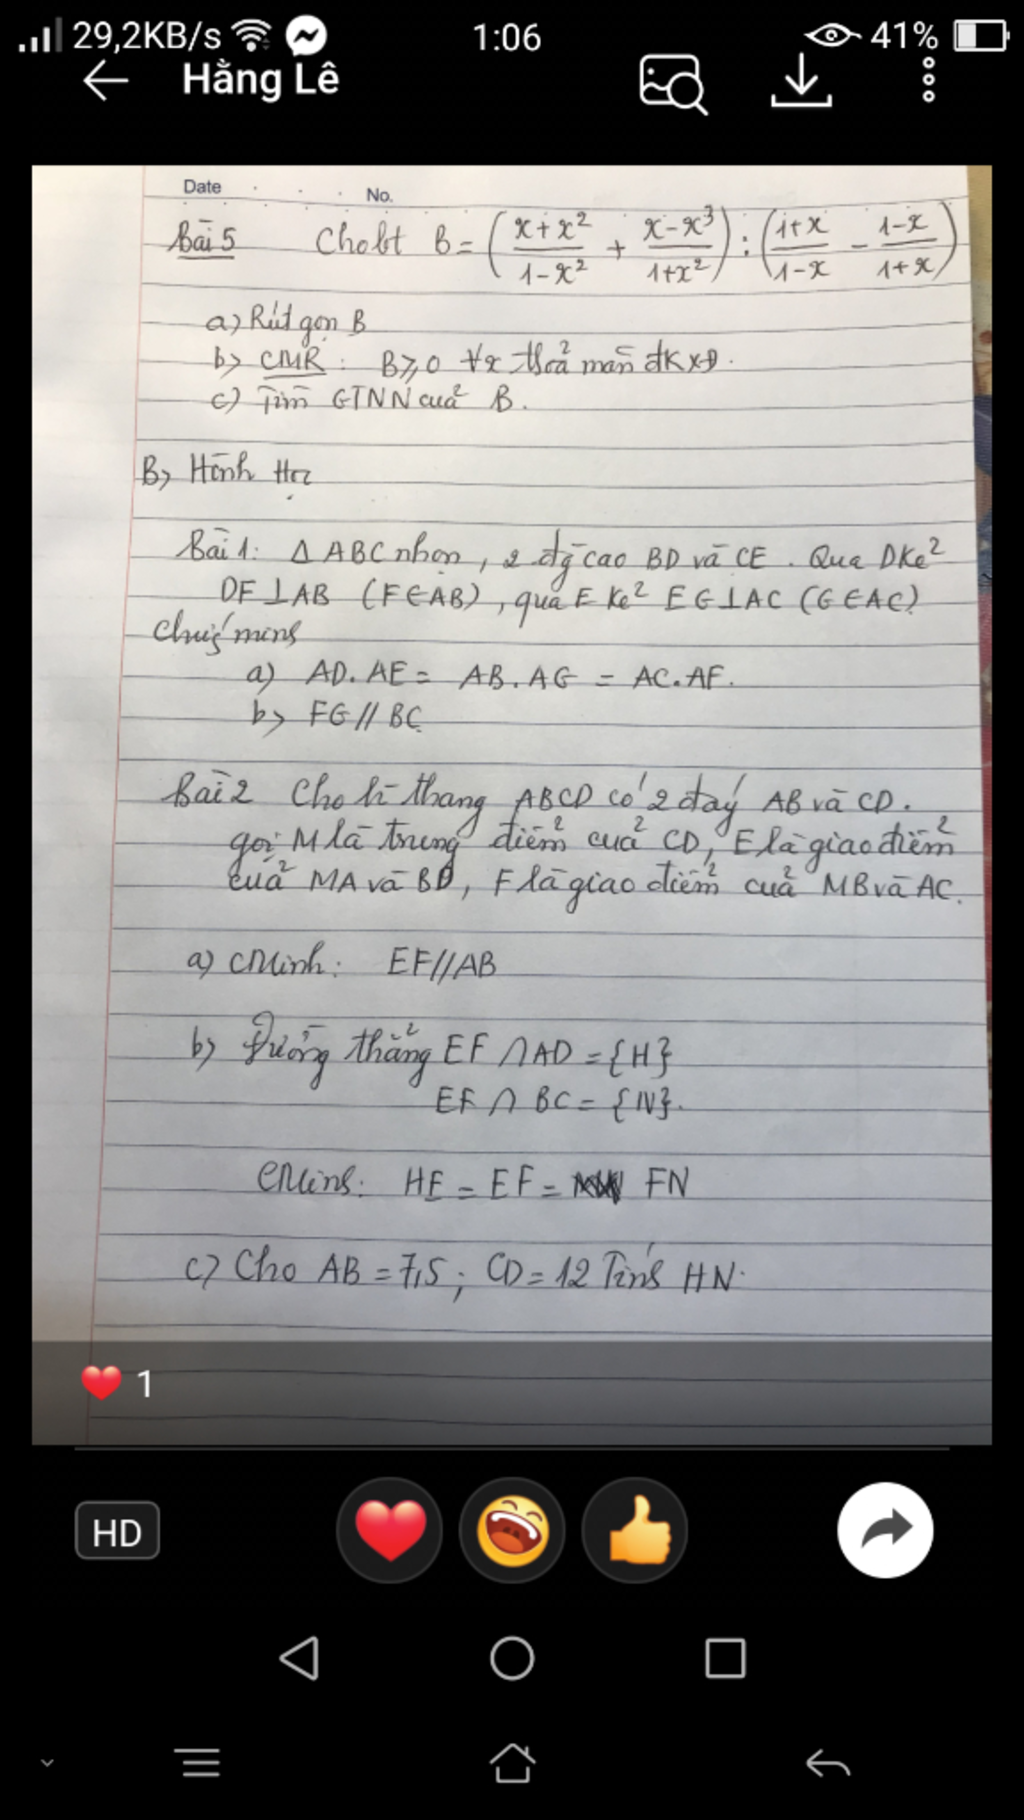 29,2KB/s 1:06 41%
Hằng Lê
Date No.
Bài 5 Cho bt B = ( (x+x²)/(1-x²) + (x-x³)/(1+x²) ) : ( (1+x)/(1-x) - (1-x)/(1+x) )
a) Rút gọn B
b) CMR : B ⩾ 0 ∀x thoả mãn đkxđ.
c) Tìm GTNN của B.
B) Hình Học
Bài 1: Δ ABC nhọn, 2 đg cao BD và CE. Qua D Kẻ
DF ⊥ AB (F ∈ AB), qua E Kẻ EG ⊥ AC (G ∈ AC)
Chứg minh
a) AD.AE = AB.AG = AC.AF.
b) FG // BC
Bài 2 Cho h thang ABCD có 2 đáy AB và CD.
gọi M là trung điểm của CD, E là giao điểm
của MA và BD, F là giao điểm của MB và AC.
a) CMinh: EF // AB
b) Đường thẳng EF ∩ AD = {H}
EF ∩ BC = {N}.
CMinh: HE = EF = FN
c) Cho AB = 7,5 ; CD = 12 Tính HN.
1
HD